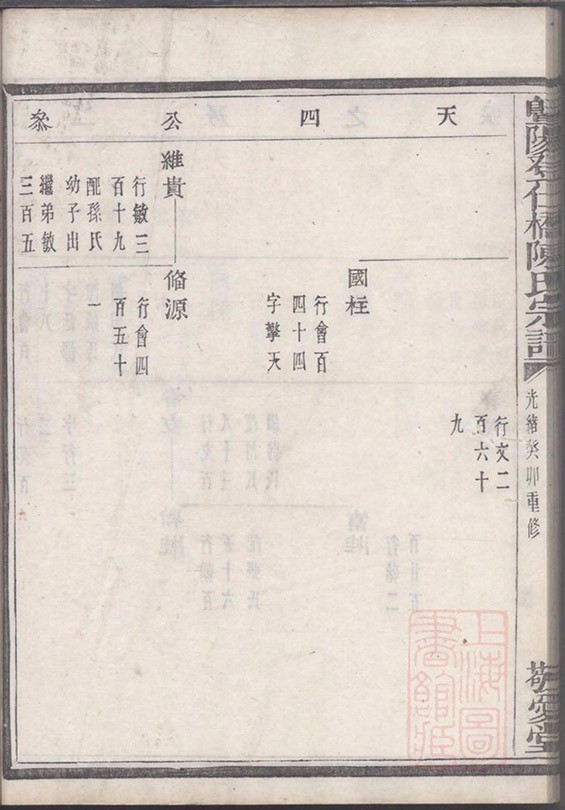 暨陽登仁橋陳氏宗譜
光緒癸卯重修
敬愛堂
天四公叅
行文二
百六十
九
國柱
行會百
四十四
字擎天
維貴
行敏三
百十九
配孫氏
幼子出
繼弟敏
三百五
脩源
行會四
百五十
一
上海圖
書館藏